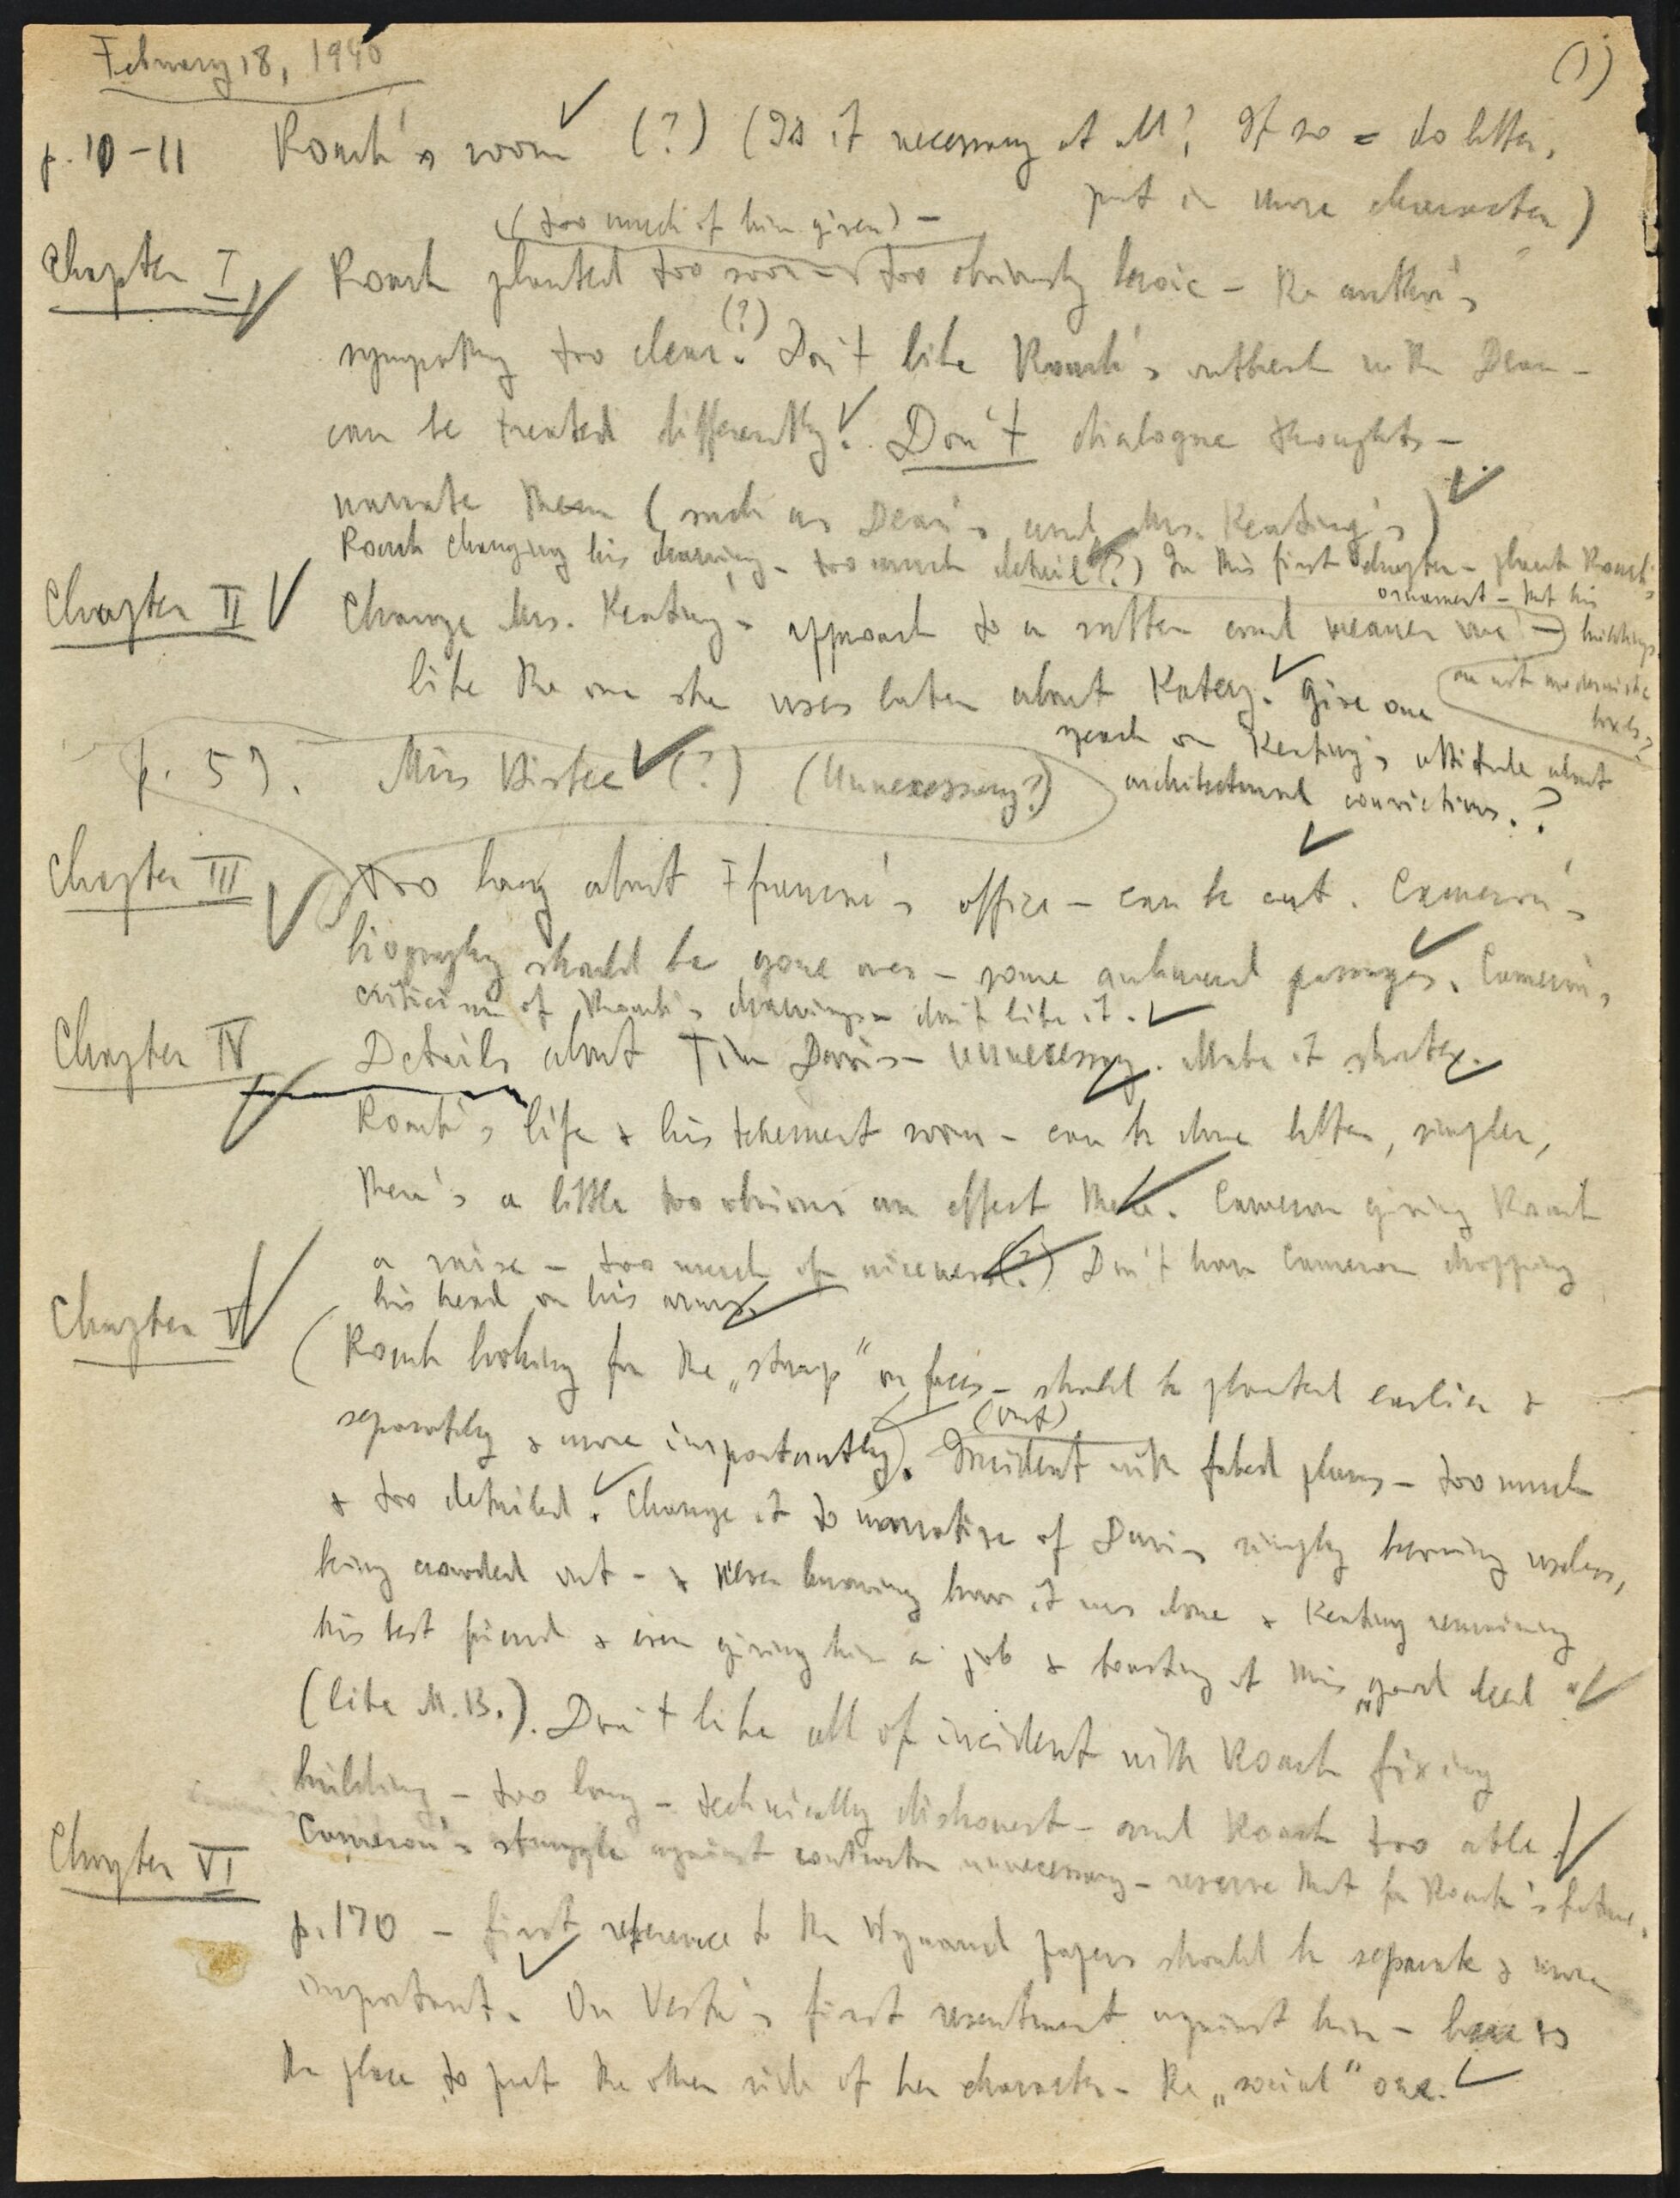 February 18, 1940
(1)
p. 10-11 Roark's room (?) (Is it necessary at all? If so = do better,
put in more character)
(too much of him given) -
Chapter I Roark planted too soon - too obviously heroic - the author's
sympathy too clear. (?) Don't like Roark's outburst with Dean -
can be treated differently. Don't dialogue thoughts -
narrate them (such as Dean's and Mrs. Keating's)
Roark changing his drawing - too much detail (?) In this first chapter - plant Roark's
ornament - that his
buildings
are not modernistic
boxes
Chapter II Change Mrs. Keating's approach to a subtler and meaner one -
like the one she uses later about Katey. Give one
speech on Keating's attitude about
architectural convictions. ?
p. 57. Miss (?) (Unnecessary?)
Chapter III Too long about Francon's office - can be cut. Cameron's
biography should be gone over - some awkward passages. Cameron's
criticism of Roark's drawings - don't like it.
Chapter IV Details about Tim Davis - unnecessary. Make it shorter.
Roark's life & his tenement room - can be done better, simpler,
there's a little too obvious an effect there. Cameron giving Roark
a raise - too much of niceness (?) Don't have Cameron dropping
his head on his arms.
Chapter V (Roark looking for the „stamp" on faces - should be planted earlier &
separately & more importantly). (out) Incident with faked plans - too much
& too detailed. Change it to narrative of Davis simply becoming useless,
being crowded out - & never knowing how it was done & Keating remaining
his best friend & even giving him a job & boasting of this „good deed"
(like M.B.). Don't like all of incident with Roark fixing
building - too long - technically dishonest - and Roark too able.
Chapter VI Cameron's struggle against contractor unnecessary - reserve that for Roark's future.
p. 170 - first reference to the Wynand papers should be separate & more
important. On Vesta's first resentment against him - here is
the place to put the other side of her character - the „social" one.